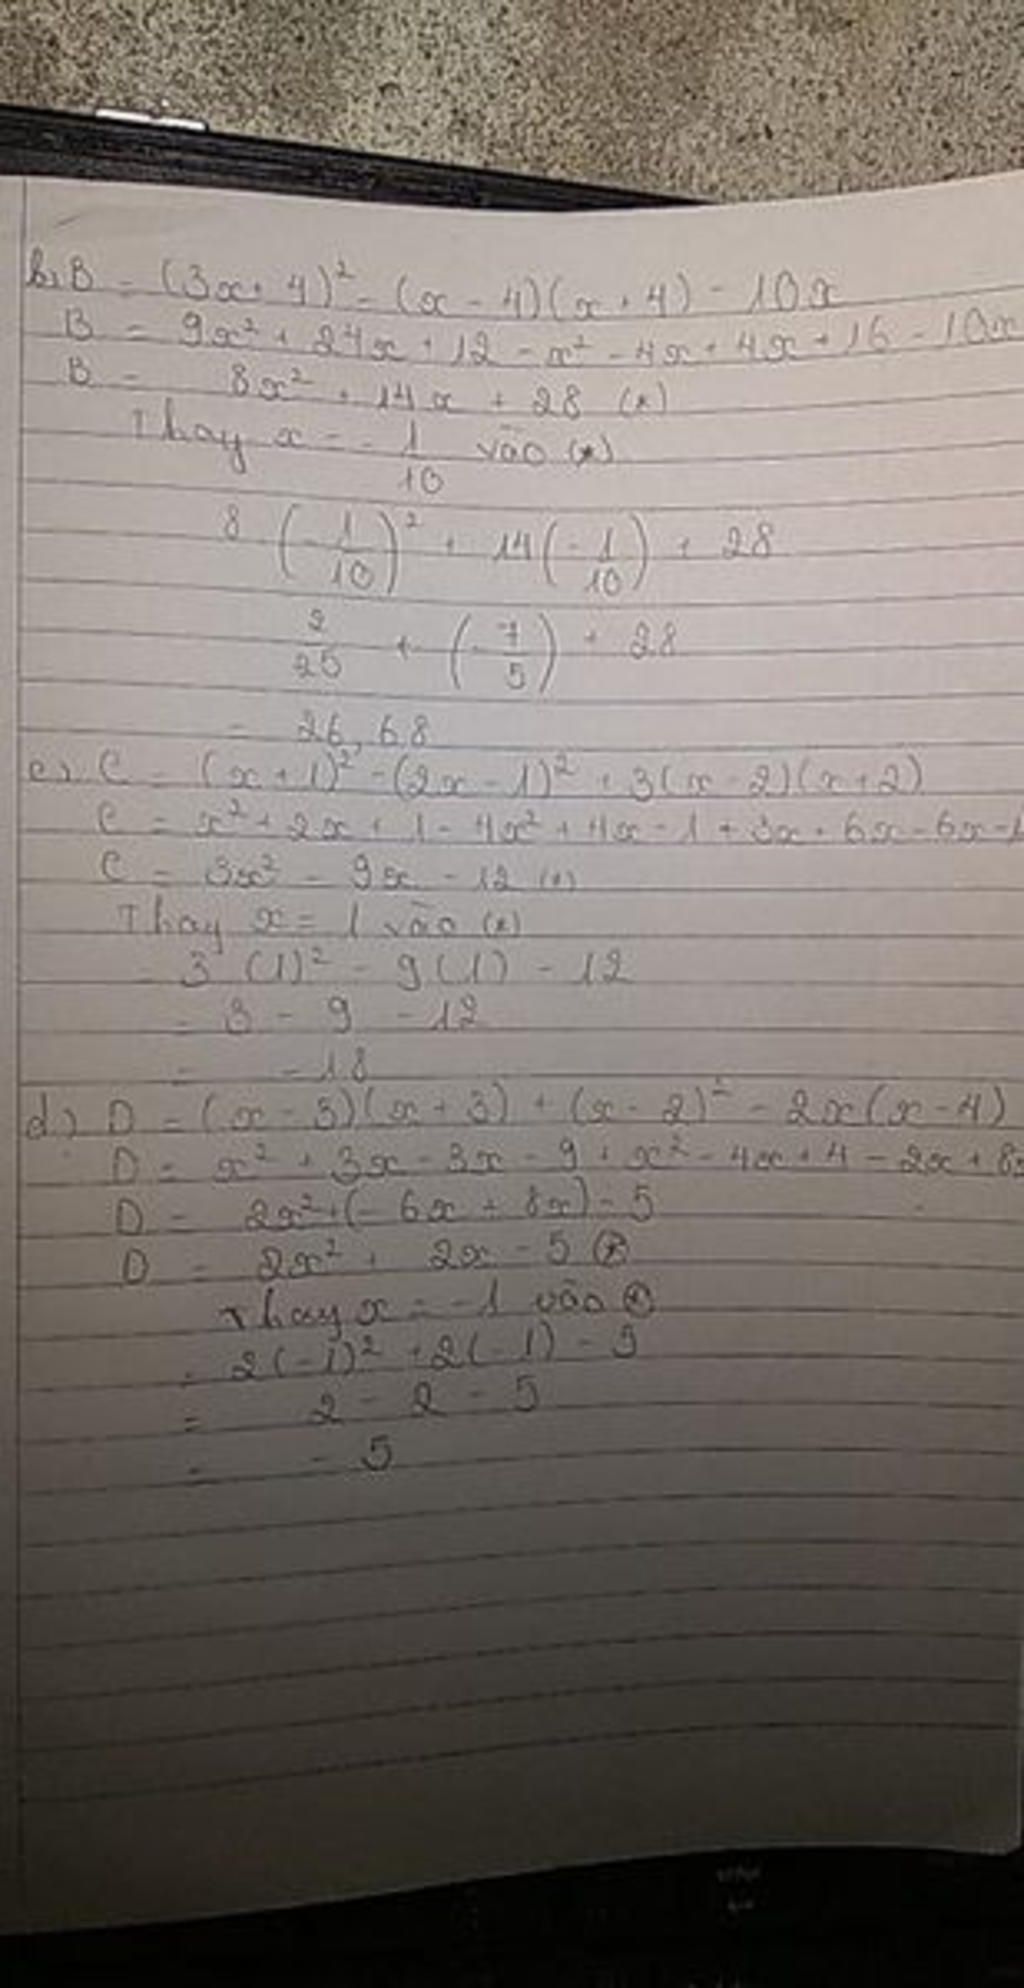 b, B = (3x + 4)² - (x - 4)(x + 4) - 10x
B = 9x² + 24x + 12 - x² - 4x + 4x + 16 - 10x
B = 8x² + 14x + 28 (*)
Thay x = -1/10 vào (*)
8(-1/10)² + 14(-1/10) + 28
2/25 + (-7/5) + 28
= 26,68
c, C = (x + 1)² - (2x - 1)² + 3(x - 2)(x + 2)
C = x² + 2x + 1 - 4x² + 4x - 1 + 3x + 6x - 6x - 1
C = 3x² - 9x - 12 (*)
Thay x = 1 vào (*)
= 3(1)² - 9(1) - 12
= 3 - 9 - 12
= -18
d, D = (x - 3)(x + 3) + (x - 2)² - 2x(x - 4)
D = x² + 3x - 3x - 9 + x² - 4x + 4 - 2x + 8x
D = 2x² + (-6x + 8x) - 5
D = 2x² + 2x - 5 (*)
Thay x = -1 vào (*)
= 2(-1)² + 2(-1) - 5
= 2 - 2 - 5
= -5